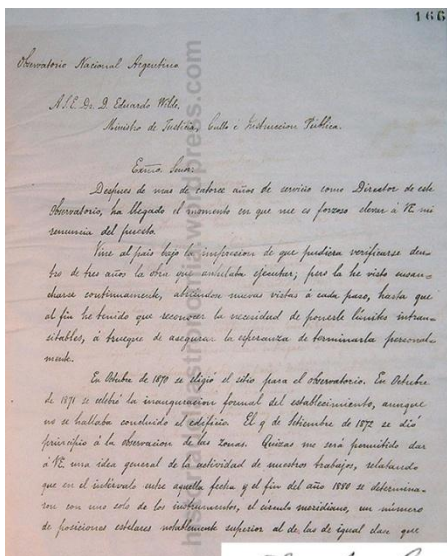 166
Observatorio Nacional Argentino
A.S.E. Dr. D. Eduardo Wilde
Ministro de Justicia, Culto é Instruccion Pública.
Exmo. Señor:
Despues de mas de catorce años de servicio como Director de este
Observatorio, ha llegado el momento en que me es forzoso elevar á VE. mi
renuncia del puesto.
Vine al pais bajo la impresion de que pudiera verificarse den-
tro de tres años la obra que anhelaba ejecutar; pero la he visto ensan-
charse continuamente, abriendose nuevas vistas á cada paso, hasta que
al fin he tenido que reconocer la necesidad de ponerle límites intran-
sitables, á trueque de asegurar la esperanza de terminarla personal-
mente.
En Octubre de 1870 se eligió el sitio para el observatorio. En Octubre
de 1871 se celebró la inauguracion formal del establecimiento, aunque
no se hallaba concluido el edificio. El 9 de Setiembre de 1872 se dió
principio á la observacion de las zonas. Quizas me será permitido dar
á VE. una idea general de la actividad de nuestros trabajos, relatando
que en el intérvalo entre aquella fecha y el fin del año 1880 se determina-
ron con uno solo de los instrumentos, el círculo meridiano, un número
de posiciones estelares notablemente superior al de las de igual clase que
historiadelaastronomia.wordpress.com